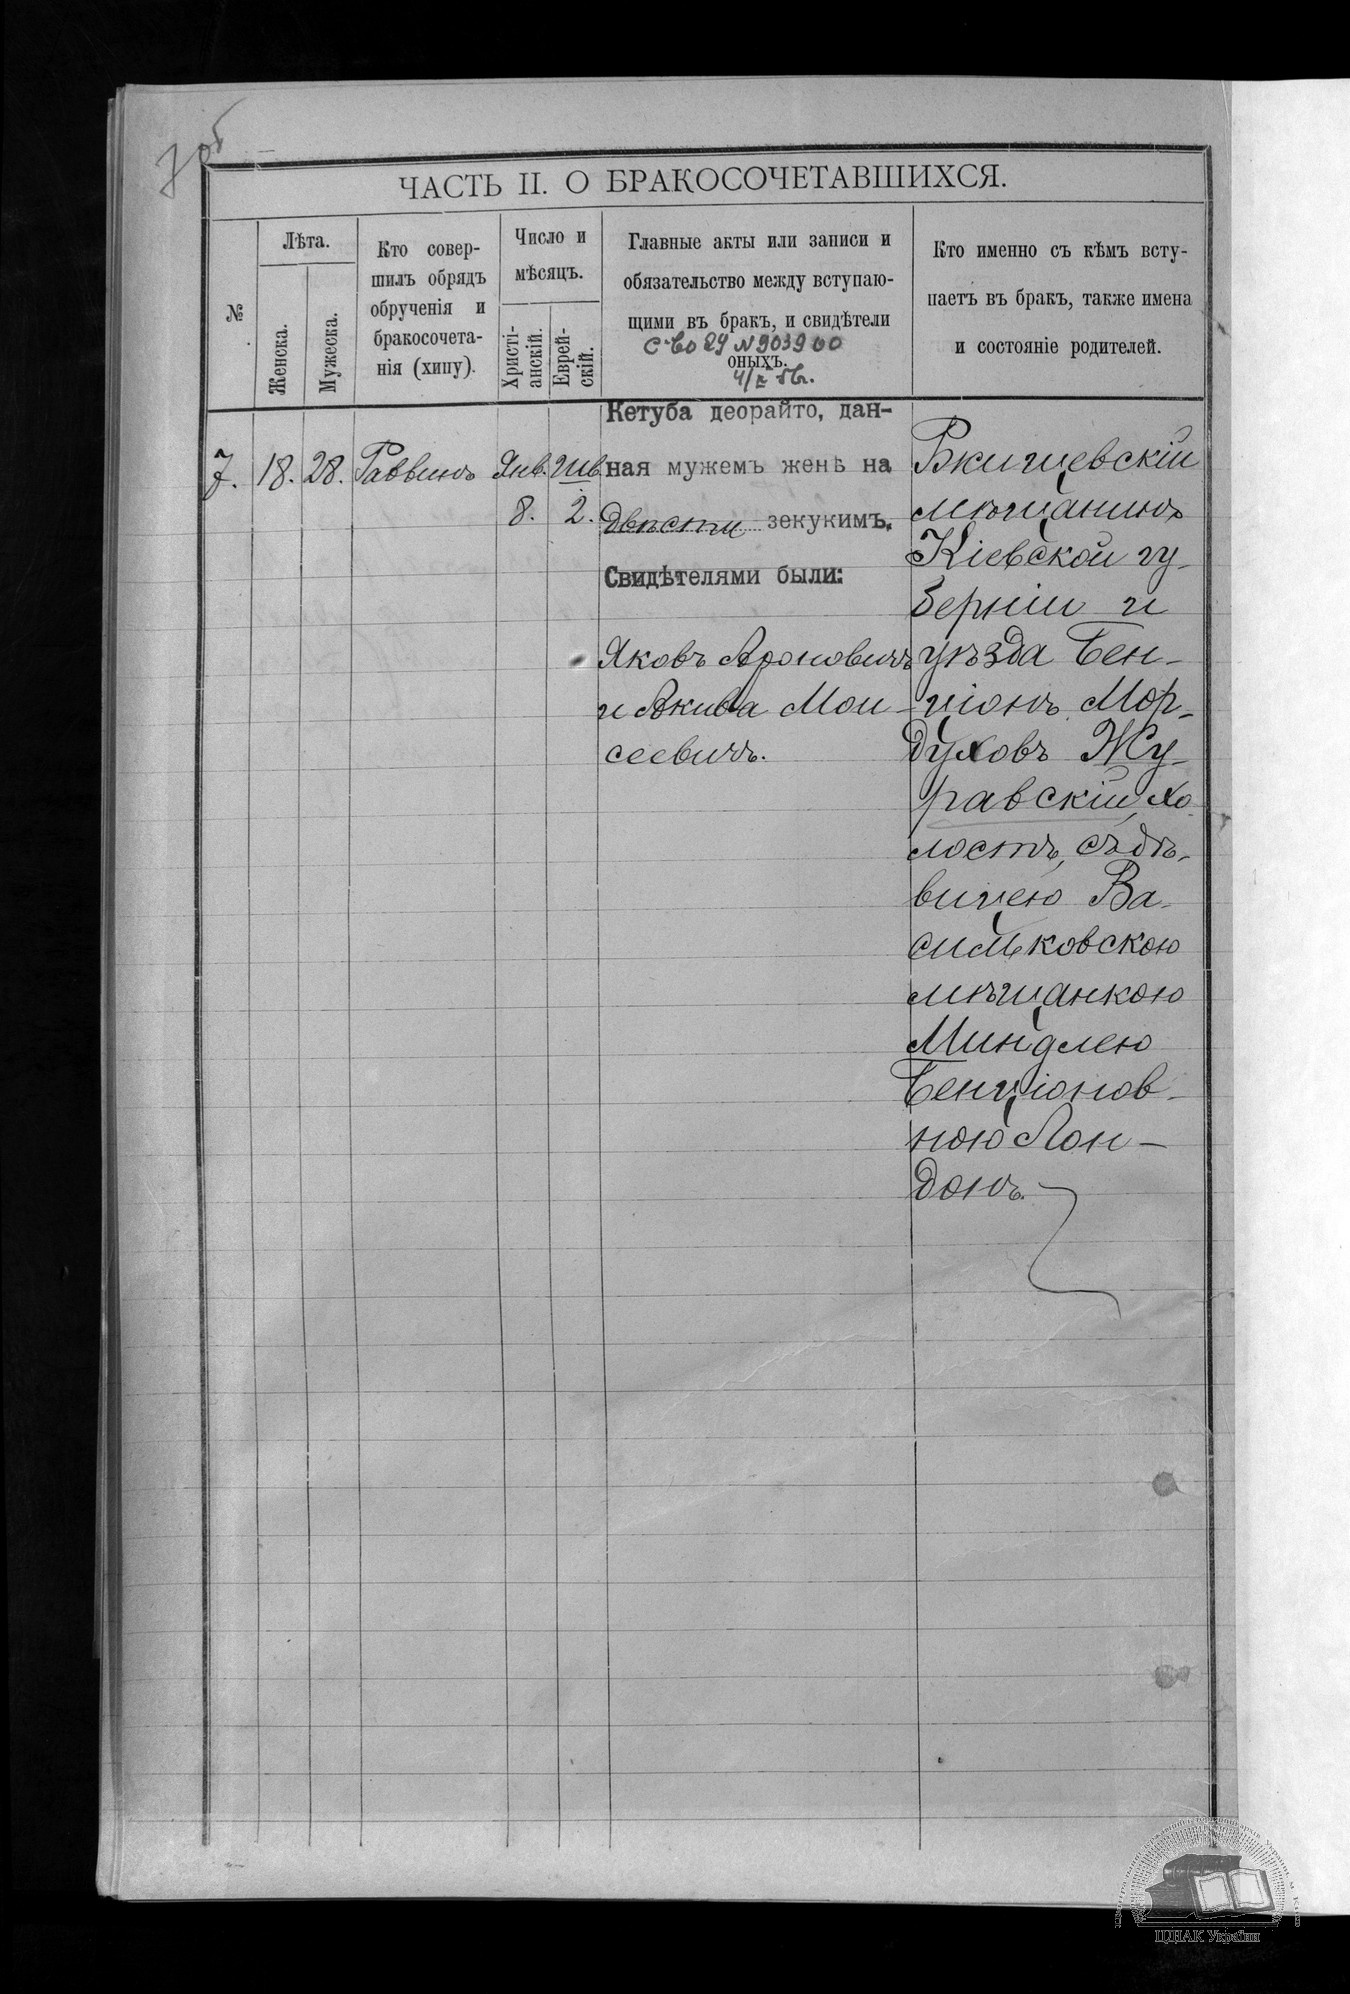 7 об
ЧАСТЬ II. О БРАКОСОЧЕТАВШИХСЯ.
№
Лѣта.
Женска.
Мужеска.
Кто совер-
шилъ обрядъ
обрученія и
бракосочета-
нія (хипу).
Число и
мѣсяцъ.
Христі-
анскій.
Еврей-
скій.
Главные акты или записи и
обязательство между вступаю-
щими въ бракъ, и свидѣтели
с-во 29 N 903900
оныхъ.
Кто именно съ кѣмъ всту-
паетъ въ бракъ, также имена
и состояніе родителей.
7.
18.
28.
Раввинъ
Янв.
8.
Шв.
2.
Кетуба деорайто, дан-
ная мужемъ женѣ на
двѣсти зекукимъ.
Свидѣтелями были:
Яковъ Ароновичъ
и Акива Мои-
сеевичъ.
Ржищевскій
мѣщанинъ
Кіевской гу-
берніи и
уѣзда Бен-
ціонъ Мор-
духовъ Жу-
равскій, хо-
лостъ, съ дѣ-
вицею Ва-
сильковскою
мѣщанкою
Миндлею
Бенціонов-
ною Лон-
донъ.
ЦДІАК України